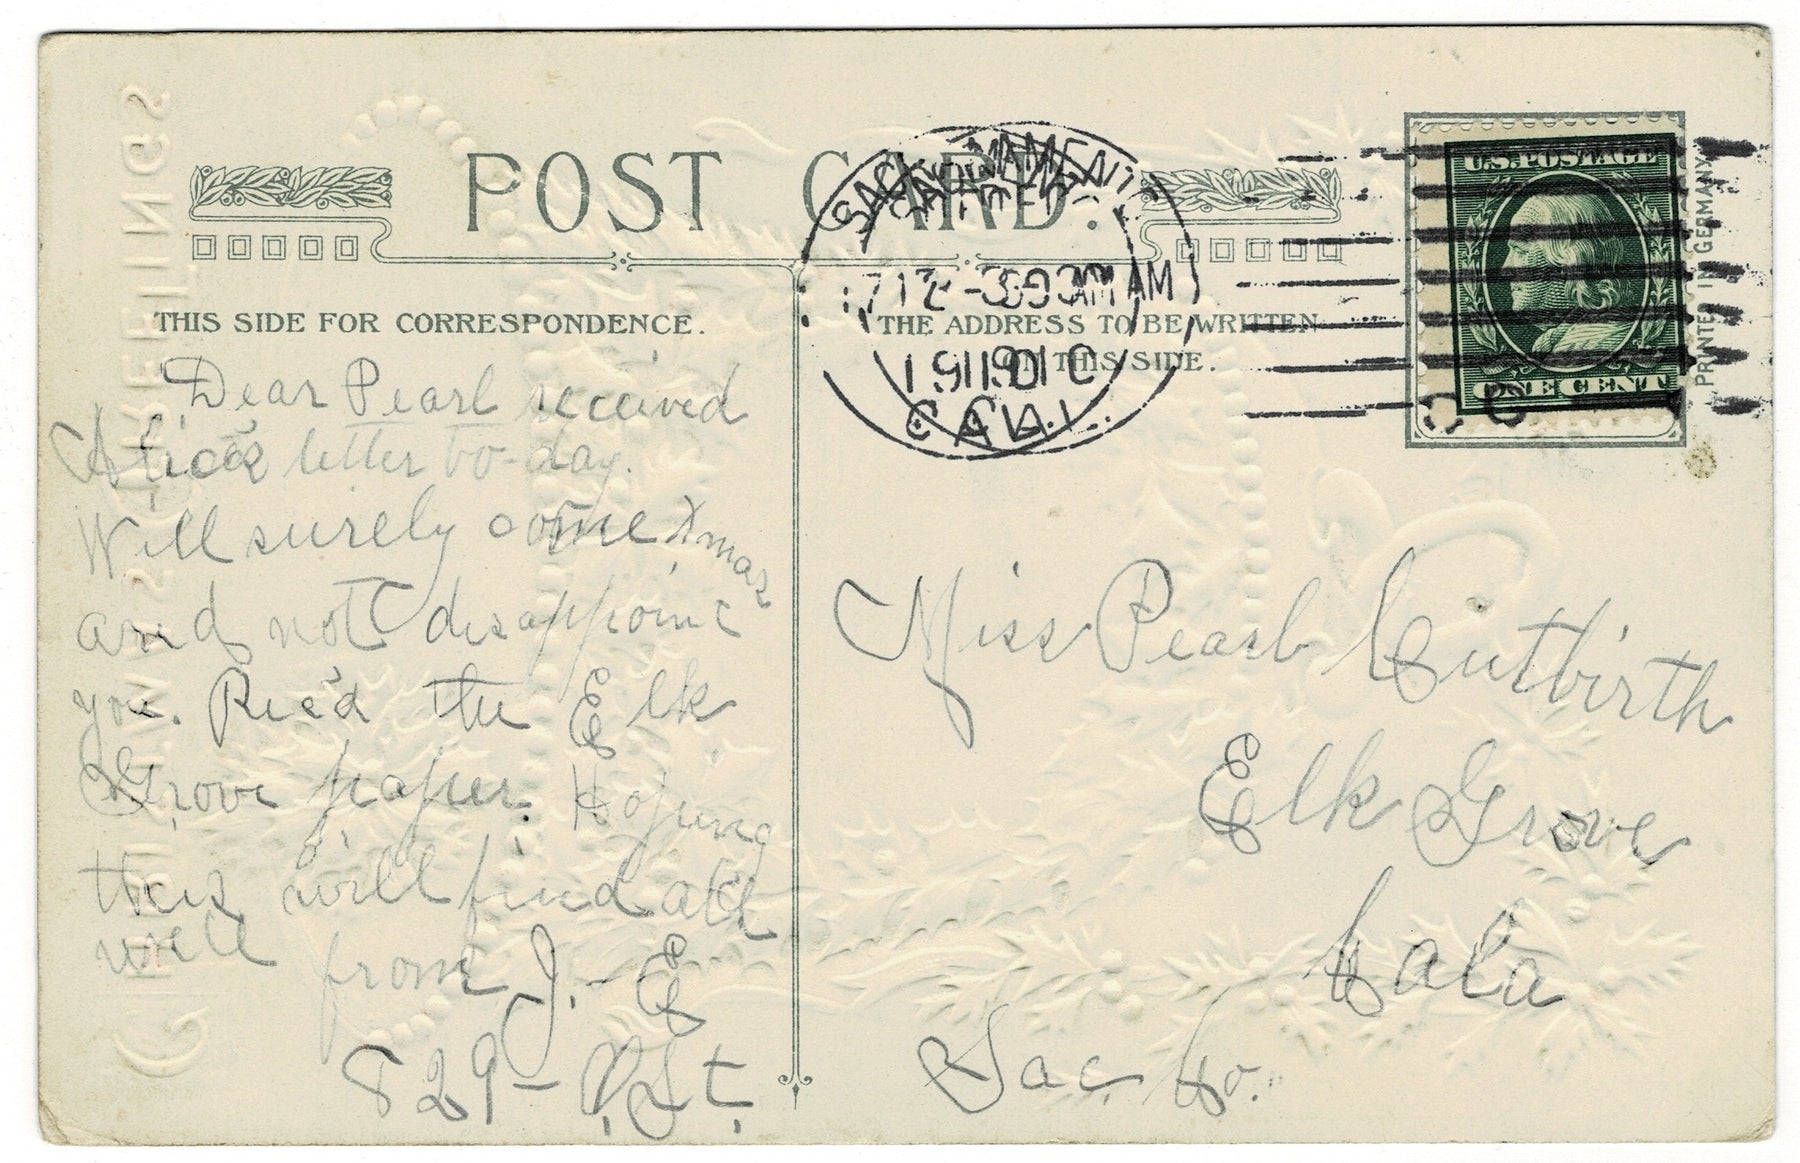 POST CARD.
THIS SIDE FOR CORRESPONDENCE.
THE ADDRESS TO BE WRITTEN
ON THIS SIDE.
SACRAMENTO
1910
CAL.
U.S. POSTAGE
ONE CENT
PRINTED IN GERMANY
Dear Pearl received
Alices letter to-day.
Will surely come Xmas
and not disappoint
you. Rec'd the Elk
Grove paper. Hoping
this will find all
well
from J.-E
829- St.
Miss Pearl Cutbirth
Elk Grove
Cala
Sac. Co.
GREETINGS